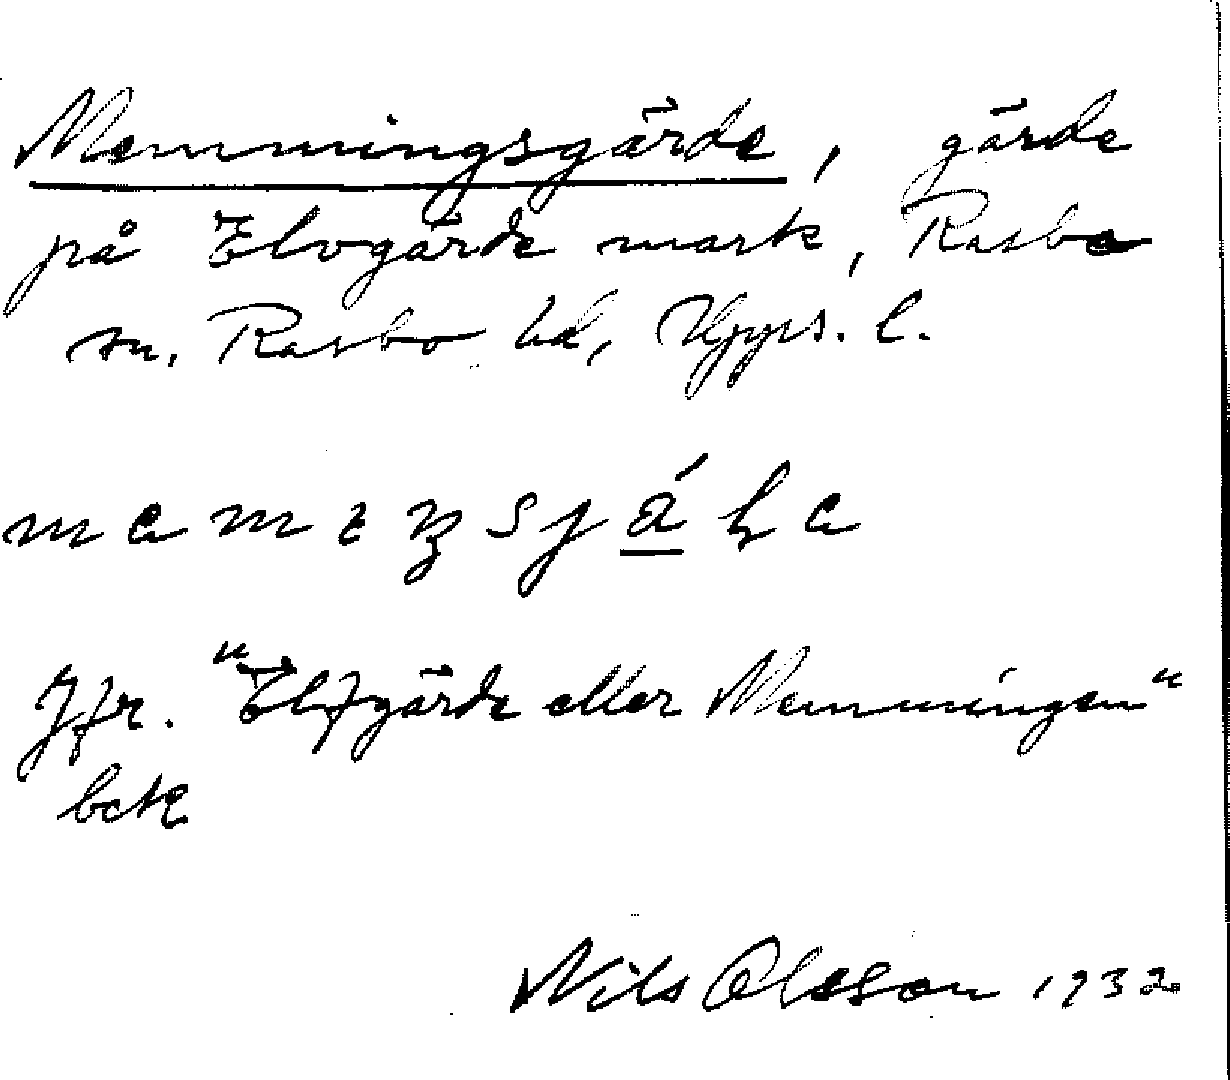 Memmingsgärde, gärde
på Elvgärde mark, Rasbo
sn. Rasbo hd, Upps. l.
Jfr. "Elfgärde eller Memmingen"
bete
Nils Olsson 1932